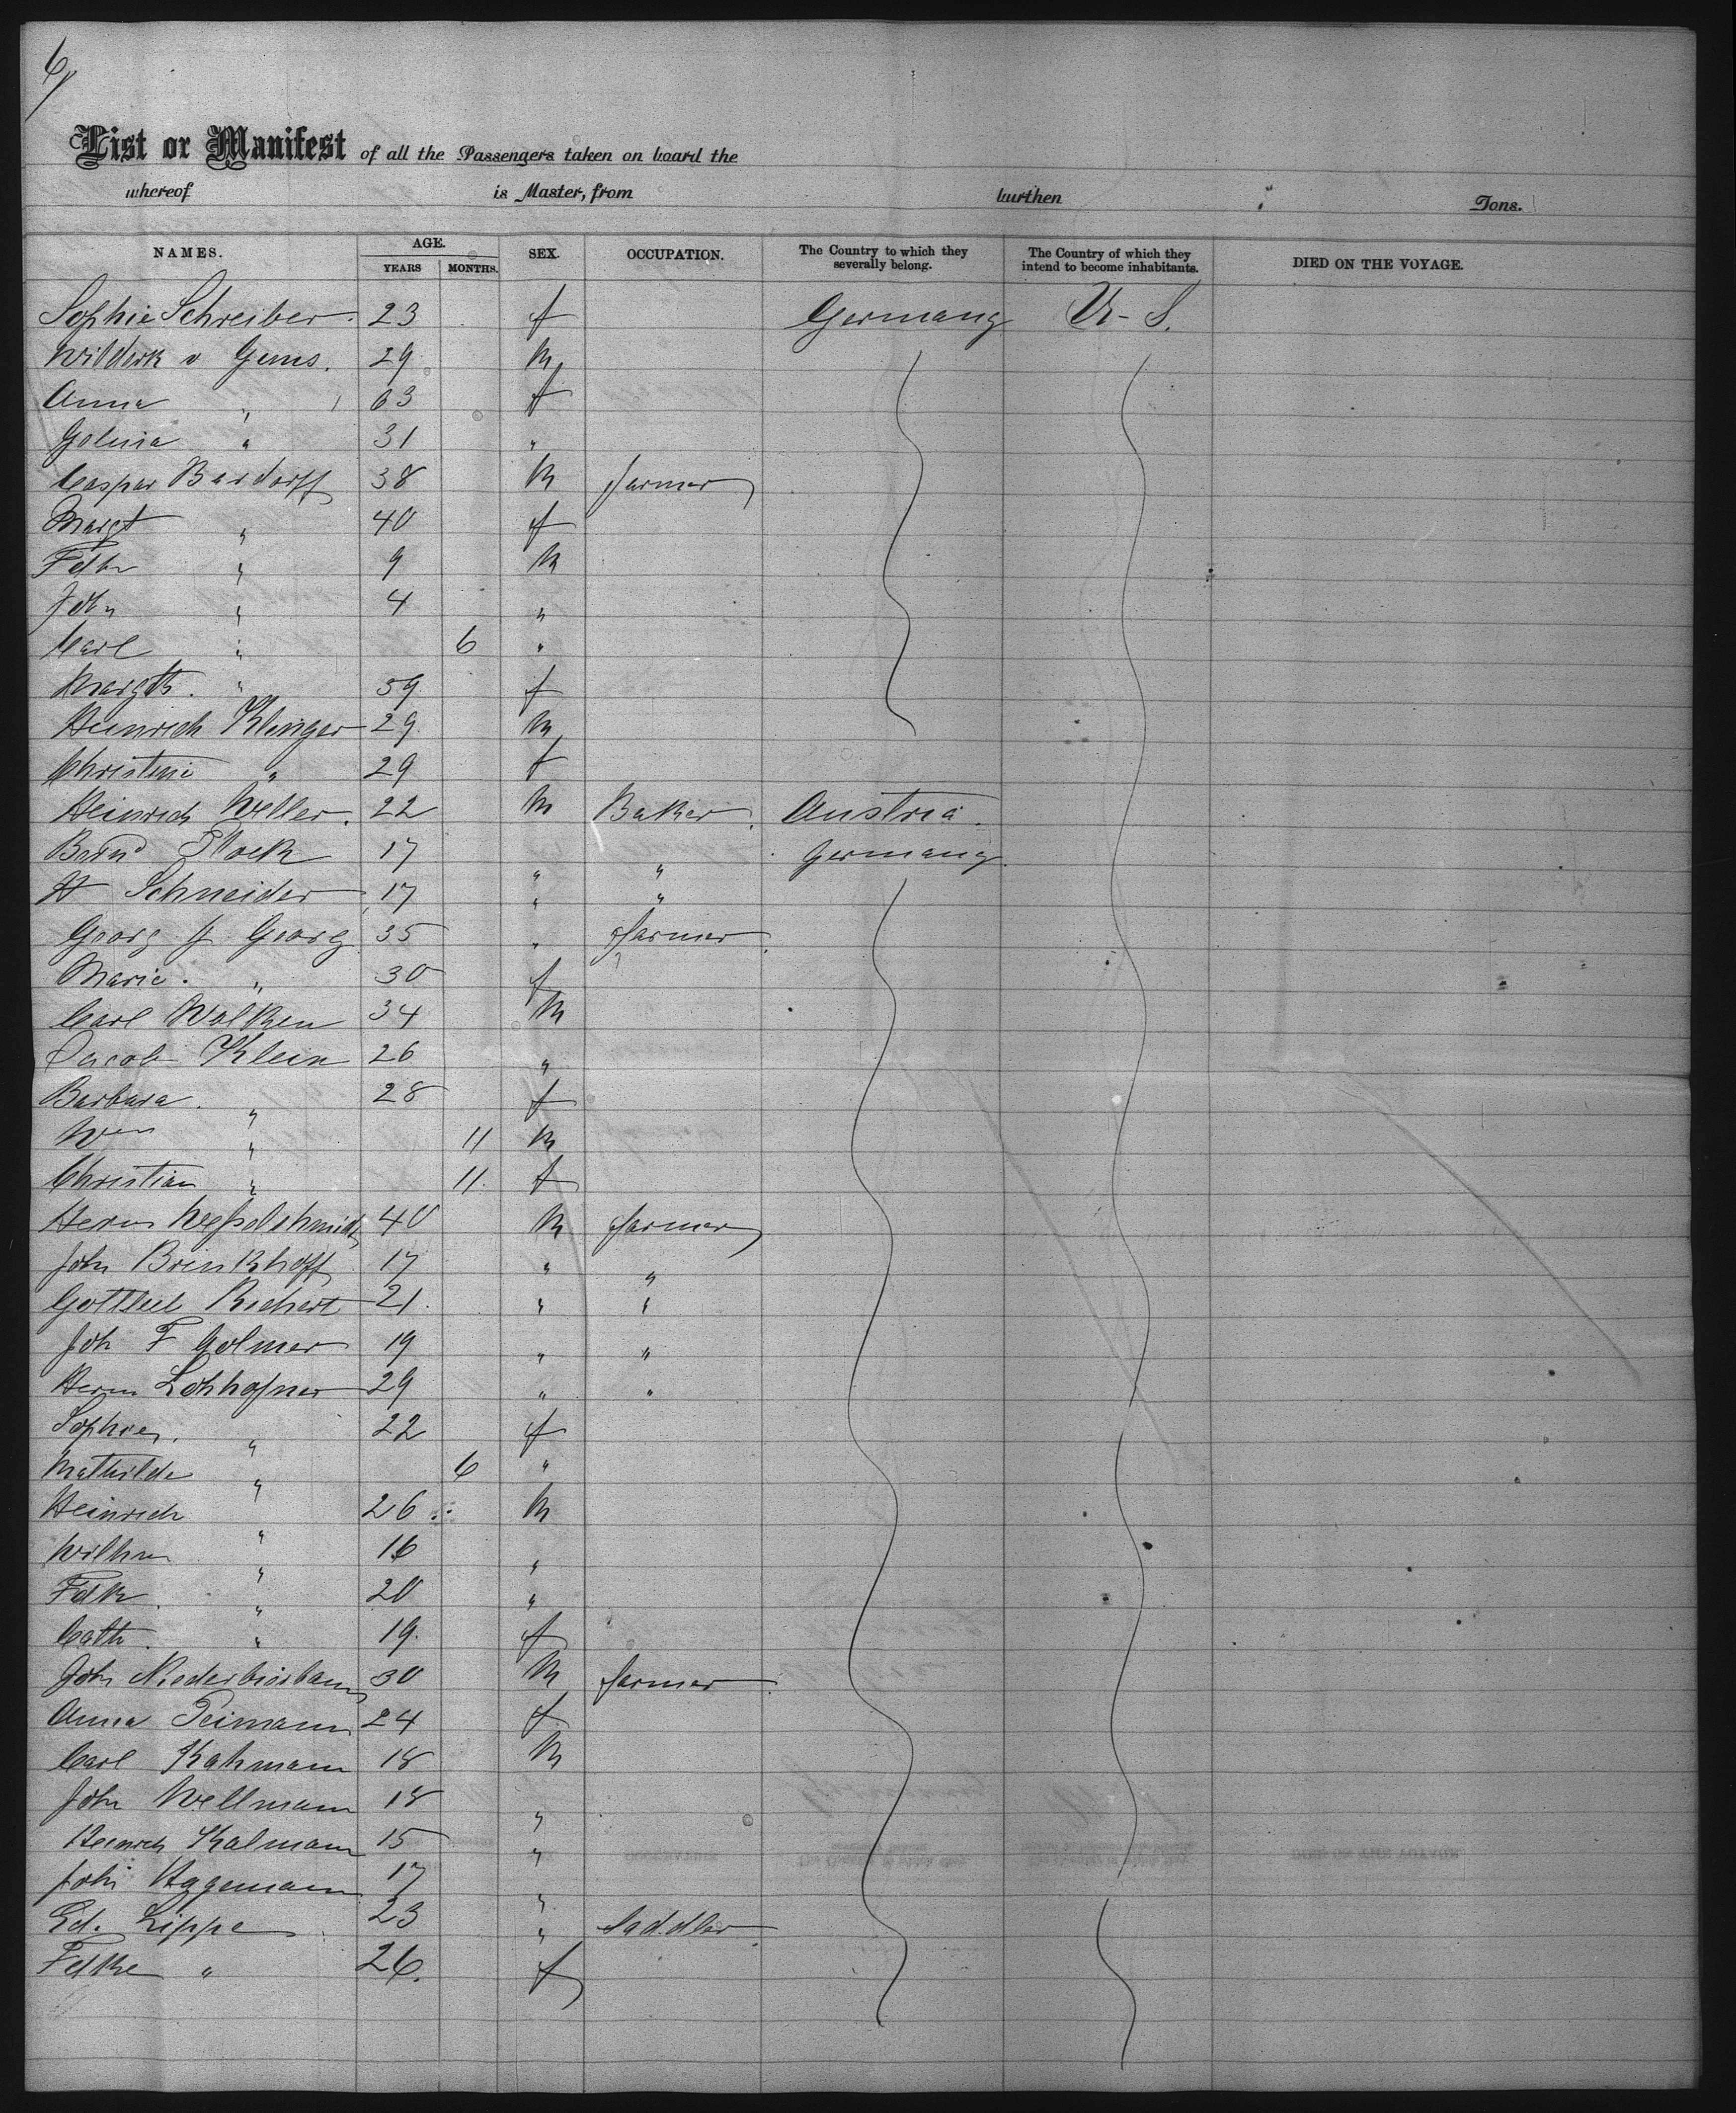 6/
List or Manifest of all the Passengers taken on board the
whereof is Master, from burthen Tons.
NAMES. AGE. YEARS MONTHS. SEX. OCCUPATION. The Country to which they severally belong. The Country of which they intend to become inhabitants. DIED ON THE VOYAGE.
Sophie Schreiber. 23 f Germany U. S.
v Gems. 29 m
Anna " 63 f
Gelina " 31 "
Caspar Bardorff 38 m farmer
Margt " 40 f
Fdk " 9 m
John " 4 "
Carl " 6 "
Margth. " 59 f
Heinrich Klinger 29 m
Christine " 29 f
Heinrich Weller. 22 m Baker. Austria.
Bernd Stock 17 " " Germany
H Schneider 17 " "
Georg J. Georg 35 " farmer
Marie. " 30 f
Carl Walken 34 m
Jacob Klein 26 "
Barbara. " 28 f
Wm " 11 m
Christian " 11. f
Herm Wesselschmidt 40 m farmer
John Brinkhoff 17 " "
Gottlieb Richert 21. " "
Joh F 19 " "
Herm Lohhofner 29 " "
Sophie. " 22 f
Mathilde " 6 "
Heinrich " 26 m
Wilhm " 16 "
Fdk. " 20 "
Cath. " 19. f
John Niederbierbaum 30 m farmer
Anna Teimann 24 f
Carl Kahmann 18 m
John Wellmann 18 "
Heinrich Kalmann 15 "
John Hagemann 17 "
Ed. Lippe 23 " Saddler
Fdke " 26. f